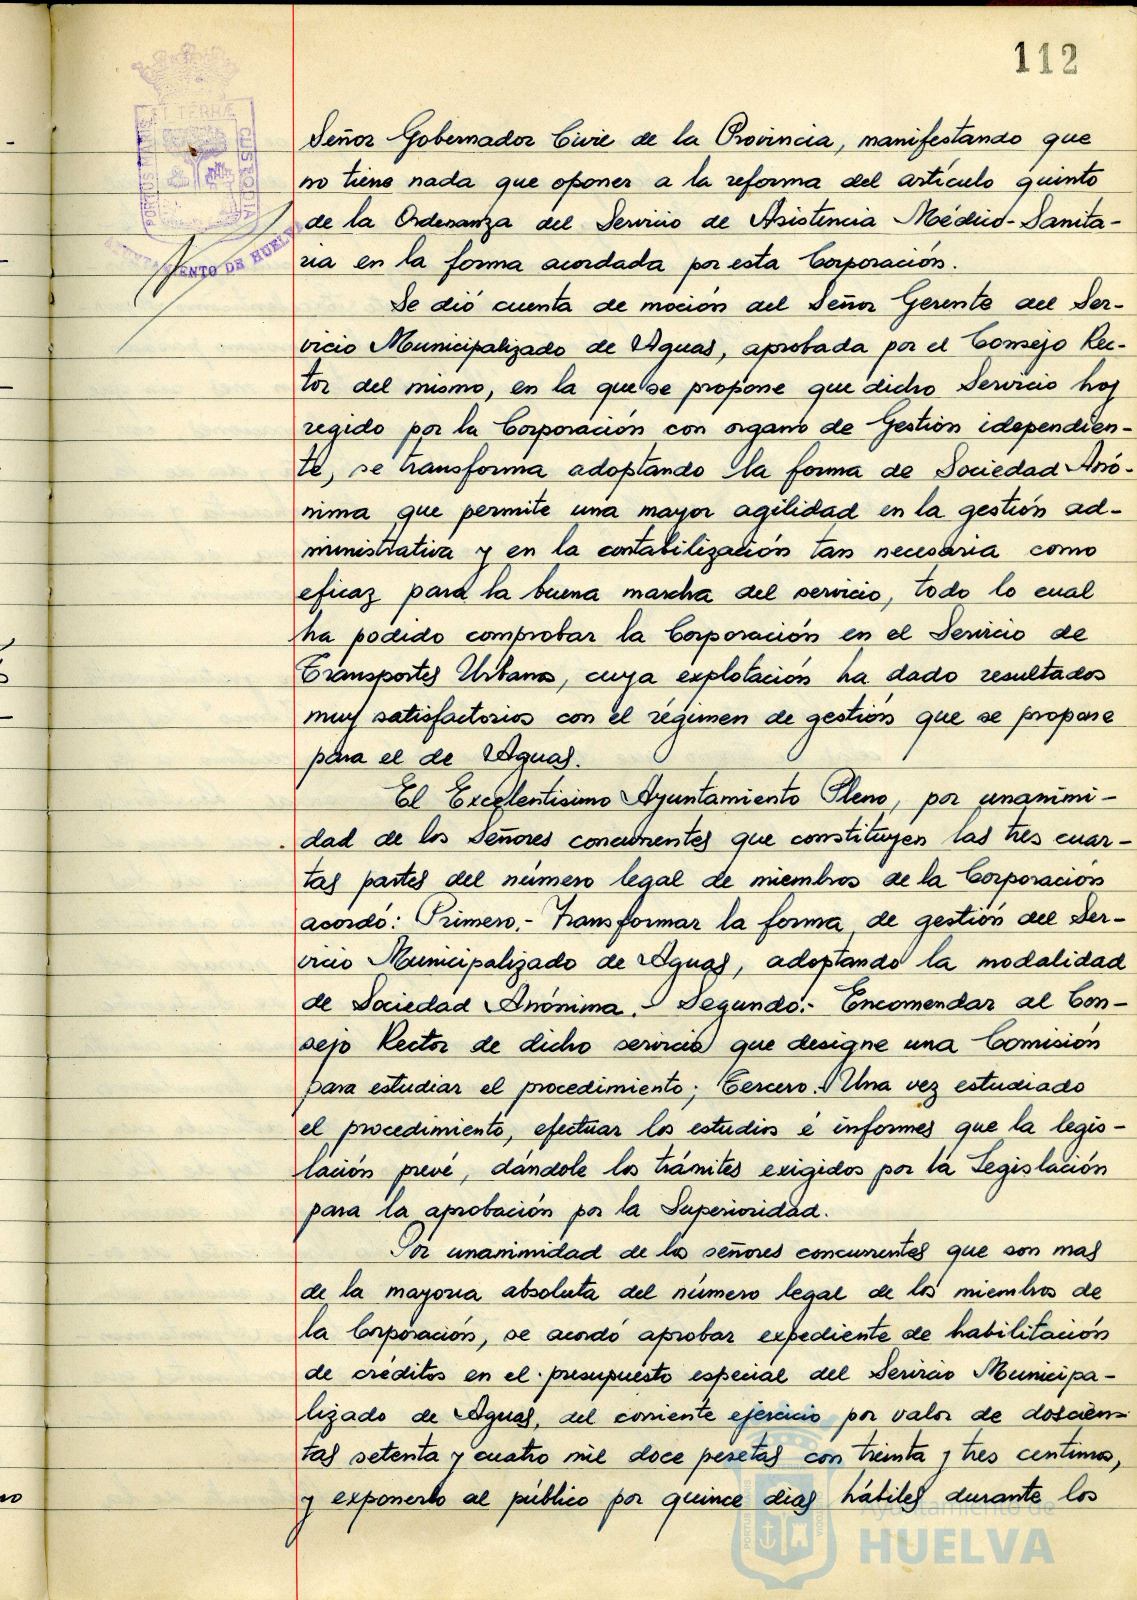 112
PORTUS MARIS ET TERRÆ CUSTODIA
AYUNTAMIENTO DE HUELVA
Señor Gobernador Civil de la Provincia, manifestando que
no tiene nada que oponer a la reforma del artículo quinto
de la Ordenanza del Servicio de Asistencia Médico-Sanita-
ria en la forma acordada por esta Corporación.
Se dió cuenta de moción del Señor Gerente del Ser-
vicio Municipalizado de Aguas, aprobada por el Consejo Rec-
tor del mismo, en la que se propone que dicho Servicio hoy
regido por la Corporación con organo de Gestión idependien-
te, se transforma adoptando la forma de Sociedad Anó-
nima que permite una mayor agilidad en la gestión ad-
ministrativa y en la contabilización tan necesaria como
eficaz para la buena marcha del servicio, todo lo cual
ha podido comprobar la Corporación en el Servicio de
Transportes Urbanos, cuya explotación ha dado resultados
muy satisfactorios con el régimen de gestión que se propone
para el de Aguas.
El Excelentisimo Ayuntamiento Pleno, por unanimi-
dad de los Señores concurrentes que constituyen las tres cuar-
tas partes del número legal de miembros de la Corporación
acordó: Primero.- Transformar la forma de gestión del Ser-
vicio Municipalizado de Aguas, adoptando la modalidad
de Sociedad Anónima.- Segundo.- Encomendar al Con-
sejo Rector de dicho servicio que designe una Comisión
para estudiar el procedimiento; Tercero.- Una vez estudiado
el procedimiento, efectuar los estudios é informes que la legis-
lación prevé, dándole los trámites exigidos por la Legislación
para la aprobación por la Superioridad.
Por unanimidad de los señores concurrentes que son mas
de la mayoria absoluta del número legal de los miembros de
la Corporación, se acordó aprobar expediente de habilitación
de créditos en el presupuesto especial del Servicio Municipa-
lizado de Aguas, del corriente ejercicio por valor de doscien-
tas setenta y cuatro mil doce pesetas con treinta y tres centimos,
y exponerlo al público por quince dias hábiles durante los
Ayuntamiento de
HUELVA